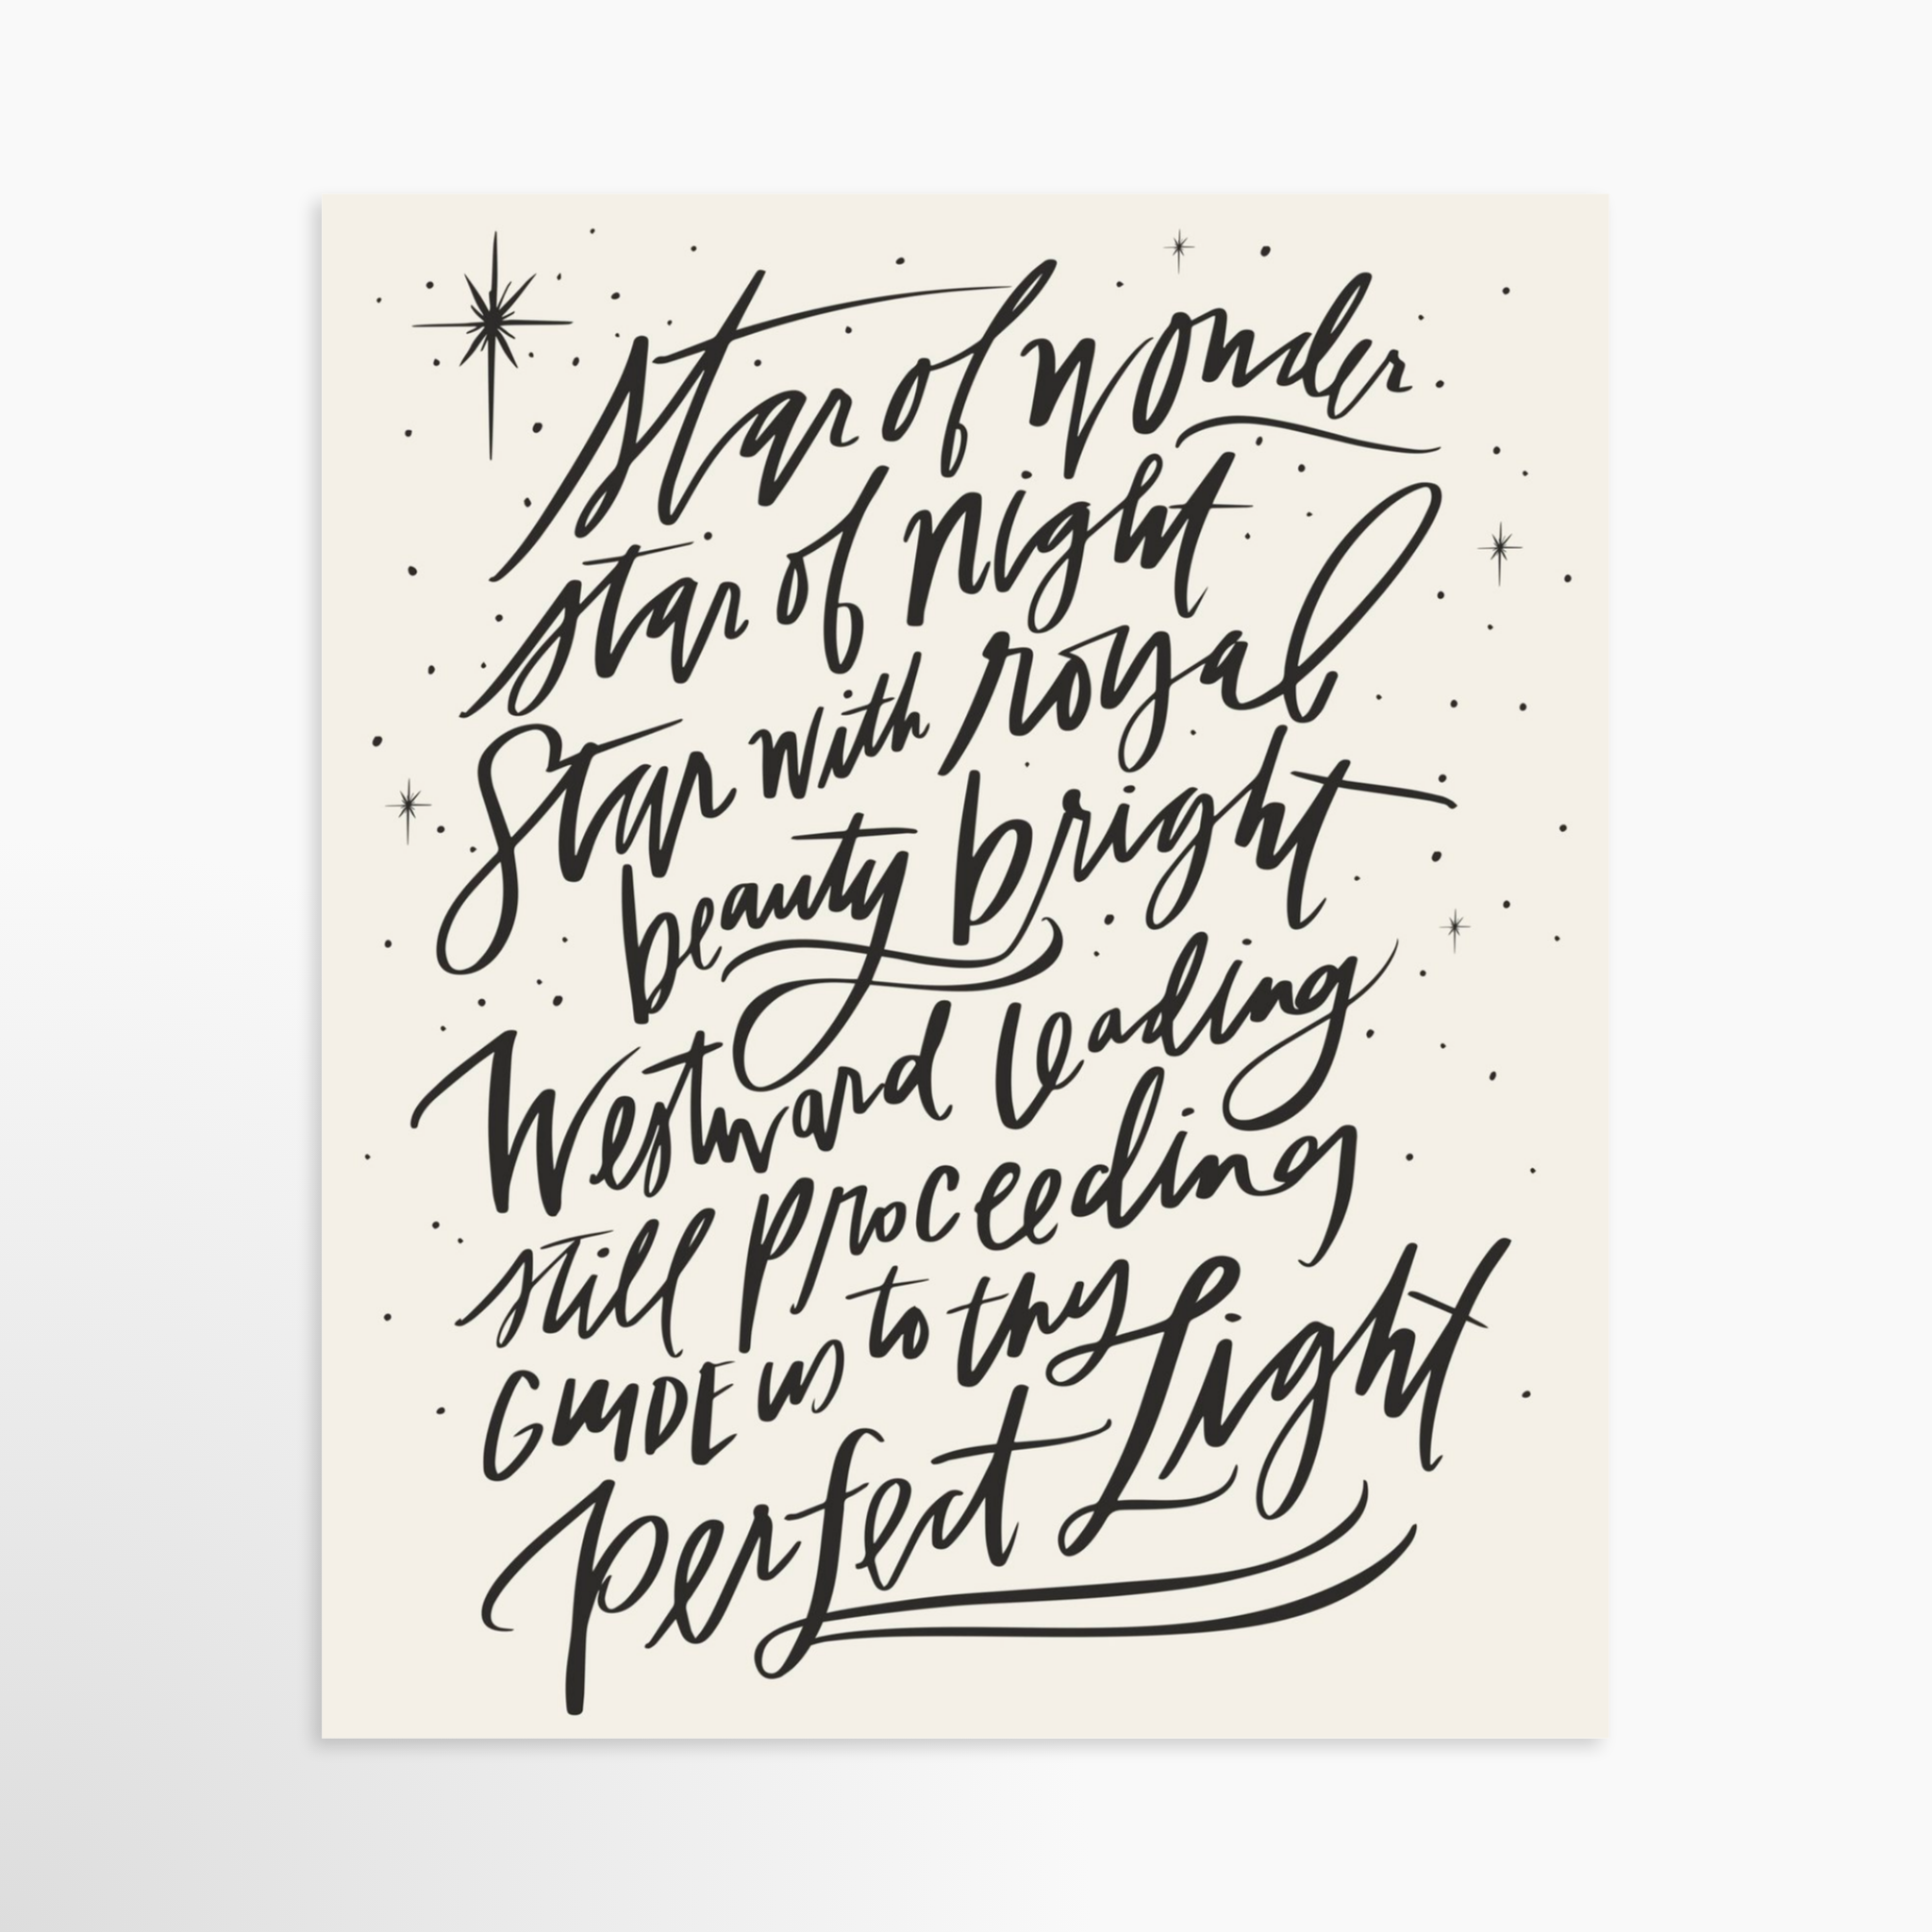 star of wonder
star of night
Star with royal
beauty bright
Westward leading
still proceeding
GUIDE us to thy
perfect Light